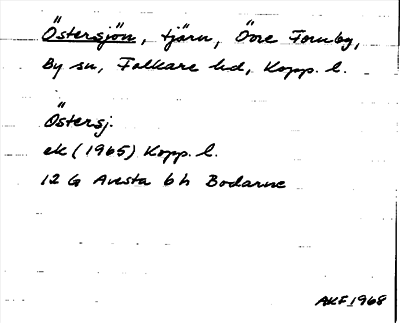 Östersjön, tjärn, Övre Fornby,
By sn, Folkare hd, Kopp. l.
Östersj.
ek (1965) Kopp. l.
12 G Avesta 6 h Bodarne
AKF 1968